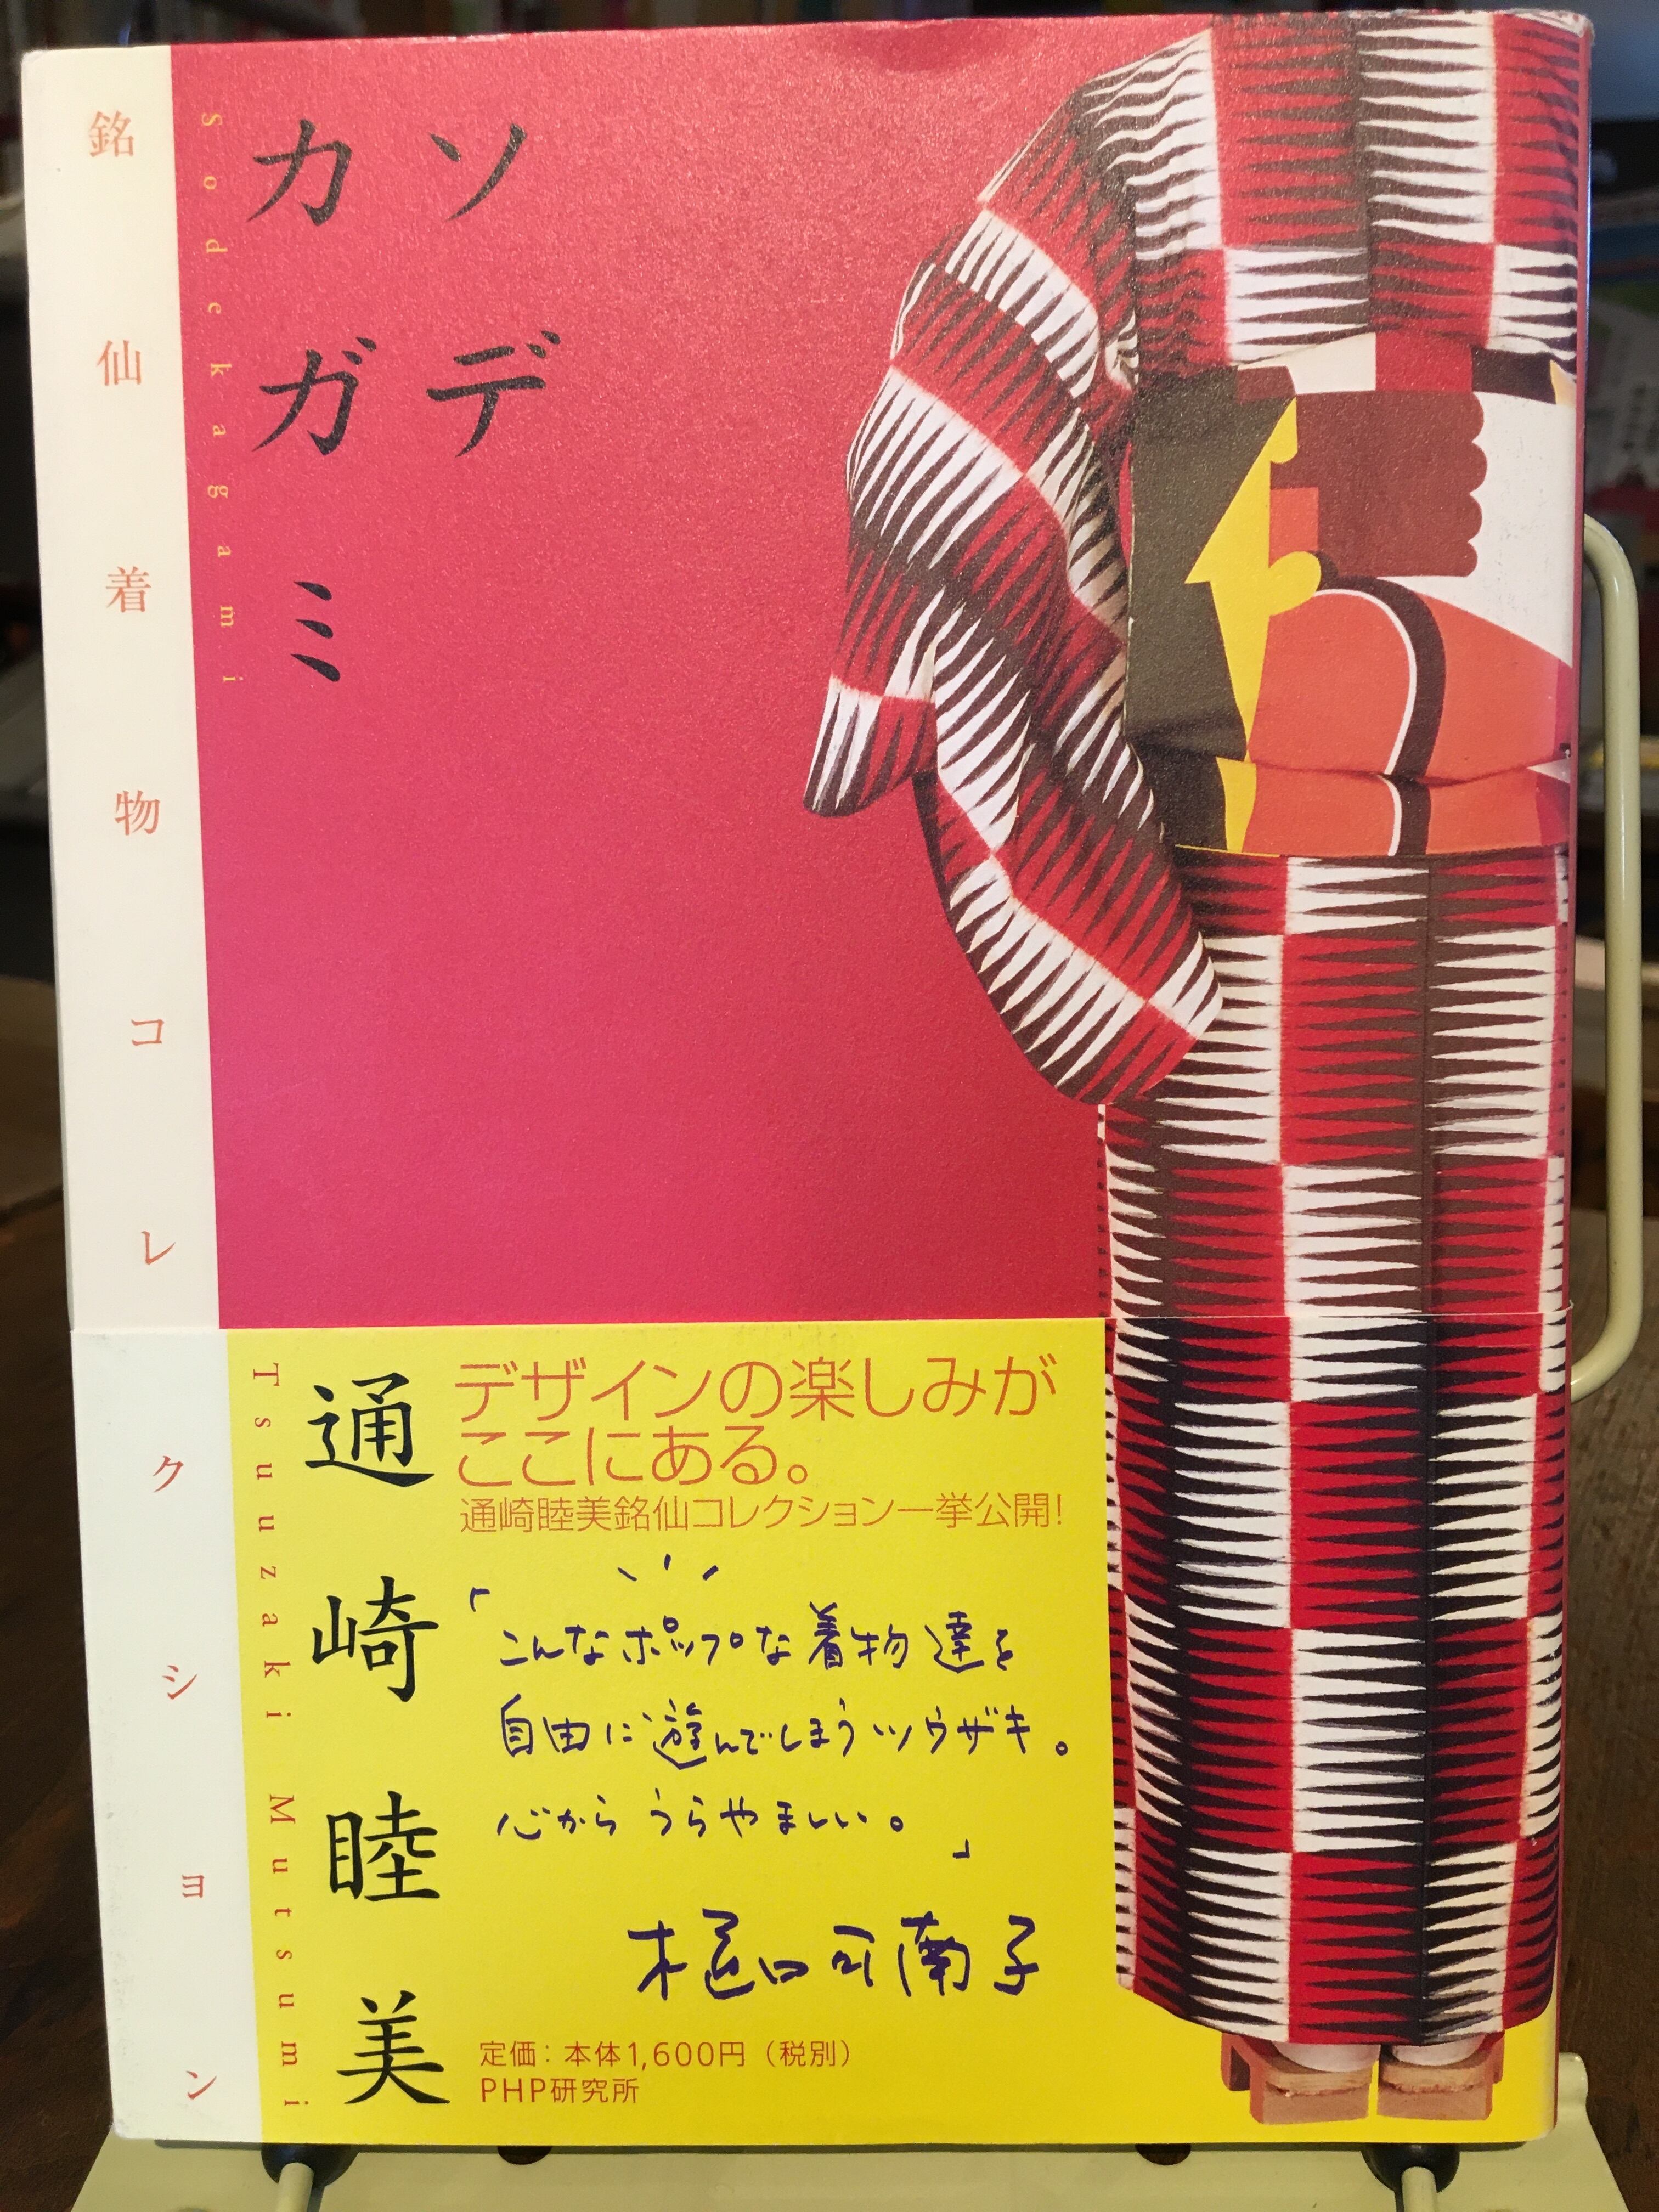 ソデ
カガミ
Sodekagami
銘仙着物コレクション
通崎睦美
Tsuuzaki Mutsumi
デザインの楽しみが
ここにある。
通崎睦美銘仙コレクション一挙公開!
「こんなポップな着物達を
自由に遊んでしまうツウザキ。
心からうらやましい。」
樋口可南子
定価:本体1,600円(税別)
PHP研究所